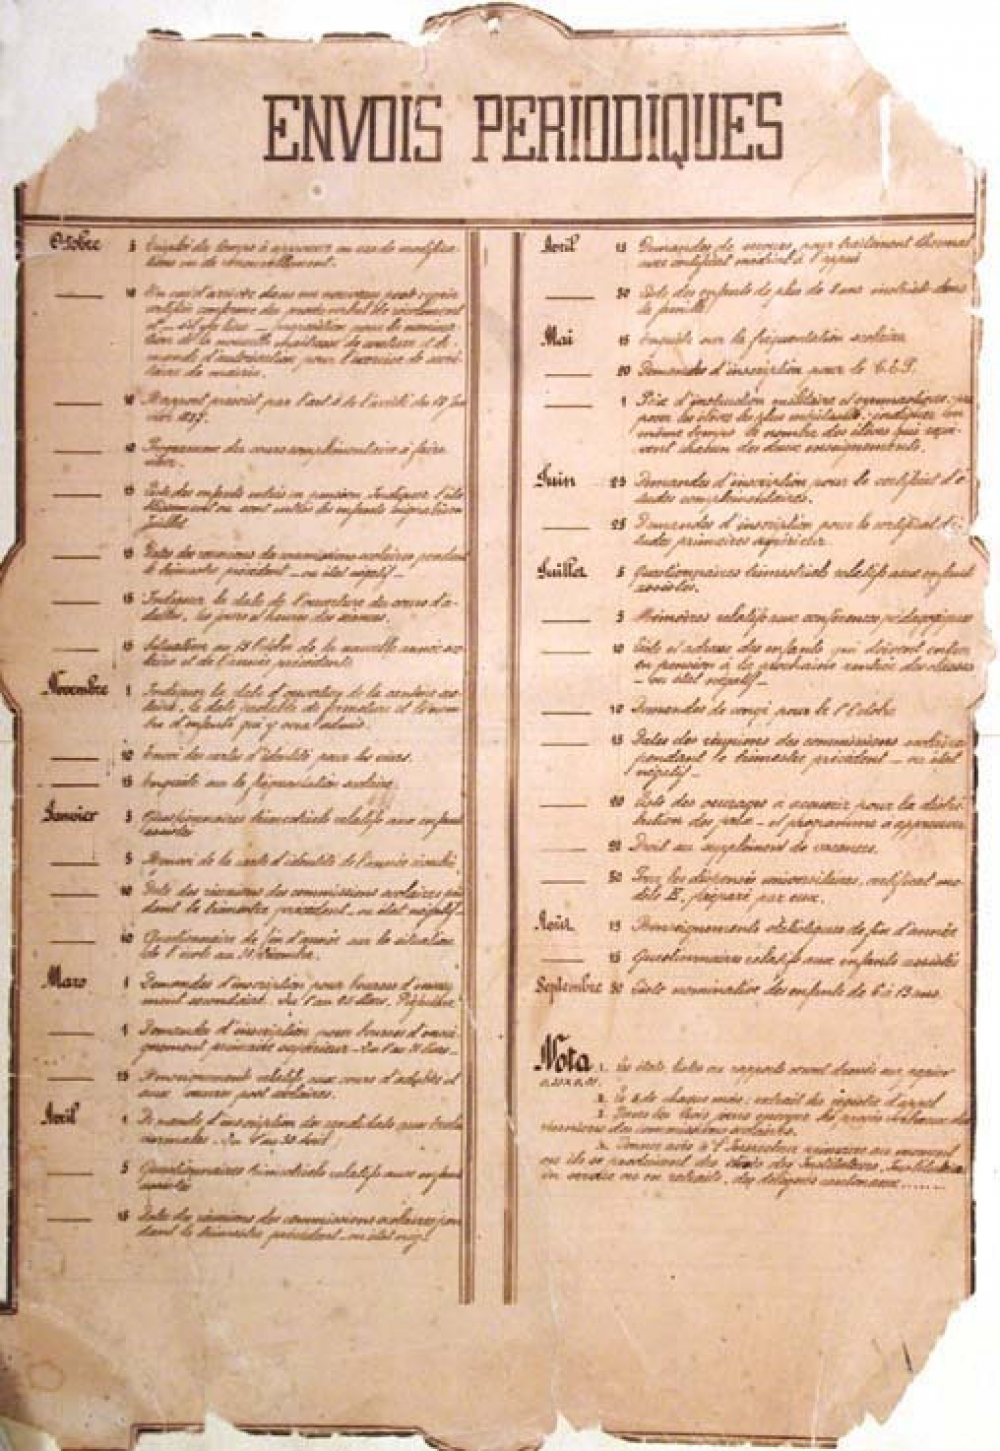 ENVOIS PERIODIQUES
Octobre 5 Emploi du temps à approuver en cas de modifica-
tions ou de renouvellement.
10 En cas d'arrivée dans un nouveau poste copie
certifiée conforme du procès verbal de récolement
et s'il y a lieu proposition pour la nomina-
tion de la nouvelle maîtresse de couture et de-
mande d'autorisation pour l'exercice de secré-
taire de mairie.
10 Rapport prescrit par l'art 4 de l'arrêté du 18 Jan-
vier 1887.
10 Programme du cours complémentaire à faire
viser.
15 Liste des enfants entrés en pension. Indiquer l'éta-
blissement où sont entrés les enfants
Juillet
15 Dates des réunions des commissions scolaires pendant
le trimestre précédent _ ou état négatif _
15 Indiquer la date de l'ouverture du cours d'a-
dultes, les jours et heures des séances.
15 Situation au 15 Octobre de la nouvelle année sco-
laire et de l'année précédente
Novembre 1 Indiquer la date d'ouverture de la cantine sco-
laire, la date probable de fermeture et le nom-
bre d'enfants qui y sera admis.
10 Envoi des cartes d'identité pour les visas.
15 Enquête sur la fréquentation scolaire
Janvier 5 Questionnaires trimestriels relatifs aux enfants
assistés
5 Renvoi de la carte d'identité de l'année écoulée
10 Date des réunions des commissions scolaires pen-
dant le trimestre précédent _ ou état négatif _
10 Questionnaire de fin d'année sur la situation
de l'école au 31 Décembre.
Mars 1 Demandes d'inscription pour bourses d'enseigne-
ment secondaire. Du 1 au 25 Mars.
1 Demandes d'inscription pour bourses d'ensei-
gnement primaire supérieur _ Du 1 au 31 Mars _
25 Renseignements relatifs aux cours d'adultes et
aux œuvres post scolaires.
Avril 1 Demande d'inscription des candidats aux écoles
normales. Du 1 au 30 Avril
5 Questionnaires trimestriels relatifs aux enfants
assistés
15 Dates des réunions des commissions scolaires pen-
dant le trimestre précédent _ ou état nég.
Avril 15 Demandes de secours pour traitement thermal
avec certificat médical à l'appui
30 Liste des enfants de plus de 8 ans instruits dans
la famille
Mai 15 Enquête sur la fréquentation scolaire
20 Demandes d'inscription pour le C.E.P.
1 Prix d'instruction militaire et gymnastique
pour les élèves les plus méritants; indiquer en
même temps le nombre des élèves qui reçoi-
vent chacun des deux enseignements.
Juin 25 Demandes d'inscription pour le certificat d'é-
tudes complémentaires.
25 Demandes d'inscription pour le certificat d'é-
tudes primaires supérieur
Juillet 5 Questionnaires trimestriels relatifs aux enfants
assistés.
5 Mémoires relatifs aux conférences pédagogiques
10 Liste et adresse des enfants qui doivent entrer
en pension à la prochaine rentrée des classes
_ ou état négatif _
10 Demandes de congé pour le 1er Octobre
15 Dates des réunions des commissions scolaires
pendant le trimestre précédent _ ou état
négatif _
20 Liste des ouvrages à acquérir pour la distri-
bution des prix _ et programme à approuver
20 Droit au supplément de vacances.
30 Pour les dispensés universitaires, certificat mo-
dèle E, préparé par eux.
Août 15 Renseignements statistiques de fin d'année
15 Questionnaires relatifs aux enfants assistés
Septembre 30 Liste nominative des enfants de 6 à 13 ans
Nota 1. Les états, listes ou rapports seront dressés sur papier
2. Le 4 de chaque mois; extrait du registre d'appel
3. Tous les mois
réunions des commissions scolaires.
4. Donner avis à l'Inspection primaire au moment
où ils se produisent des décès des Instituteurs, Institutrices
en service ou en retraite, des délégués cantonaux.......